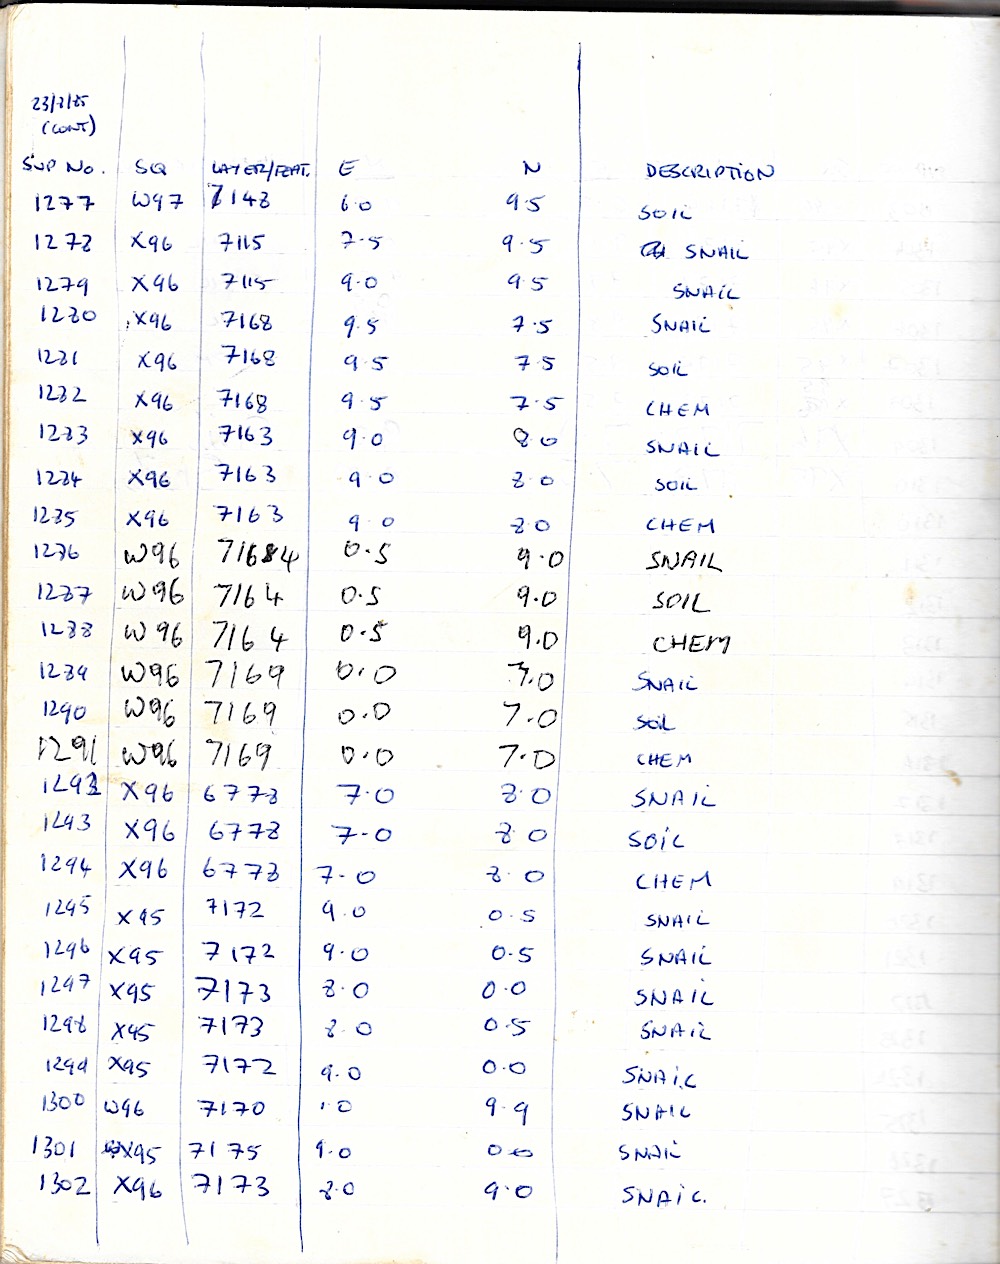 23/7/85
(CONT)
SUP NO. SQ LAYER/FEAT. E N DESCRIPTION
1277 W97 7148 6.0 9.5 SOIL
1278 X96 7115 7.5 9.5 SNAIL
1279 X96 7115 9.0 9.5 SNAIL
1280 X96 7168 9.5 7.5 SNAIL
1281 X96 7168 9.5 7.5 SOIL
1282 X96 7168 9.5 7.5 CHEM
1283 X96 7163 9.0 8.0 SNAIL
1284 X96 7163 9.0 8.0 SOIL
1285 X96 7163 9.0 8.0 CHEM
1286 W96 7164 0.5 9.0 SNAIL
1287 W96 7164 0.5 9.0 SOIL
1288 W96 7164 0.5 9.0 CHEM
1289 W96 7169 0.0 7.0 SNAIL
1290 W96 7169 0.0 7.0 SOIL
1291 W96 7169 0.0 7.0 CHEM
1292 X96 6778 7.0 8.0 SNAIL
1293 X96 6778 7.0 8.0 SOIL
1294 X96 6778 7.0 8.0 CHEM
1295 X95 7172 9.0 0.5 SNAIL
1296 X95 7172 9.0 0.5 SNAIL
1297 X95 7173 8.0 0.0 SNAIL
1298 X95 7173 8.0 0.5 SNAIL
1299 X95 7172 9.0 0.0 SNAIL
1300 W96 7170 1.0 9.9 SNAIL
1301 X95 7175 9.0 0.0 SNAIL
1302 X96 7173 8.0 9.0 SNAIL.